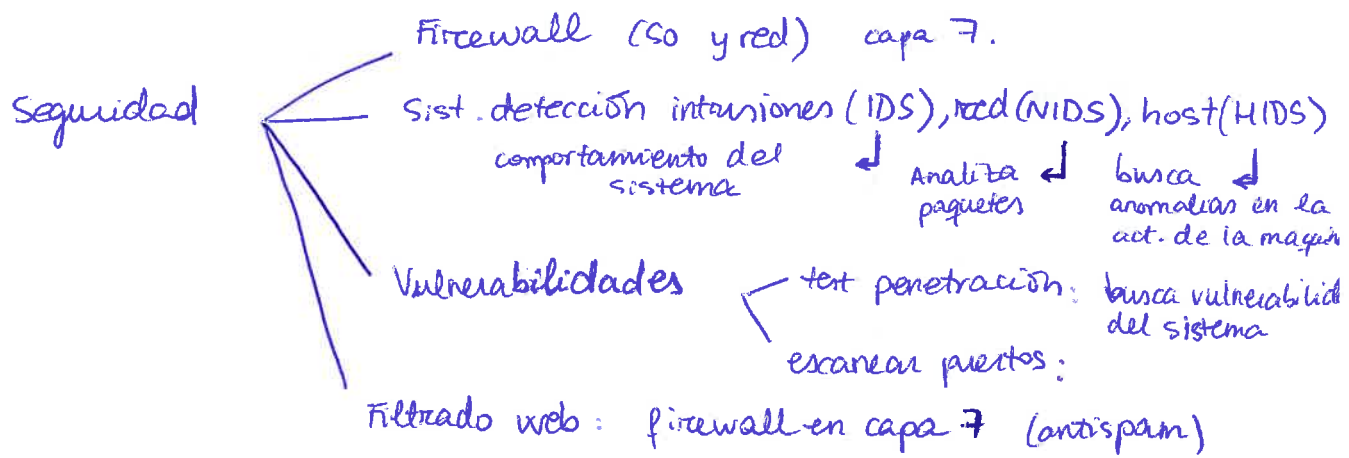 Firewall (so y red) capa 7.
Seguridad
Sist. detección intrusiones (IDS), red (NIDS), host (HIDS)
comportamiento del sistema
Analiza paquetes
busca anomalias en la act. de la maquin
Vulnerabilidades
test penetración: busca vulnerabilid del sistema
escanear puertos:
Filtrado web: firewall en capa 7 (antispam)